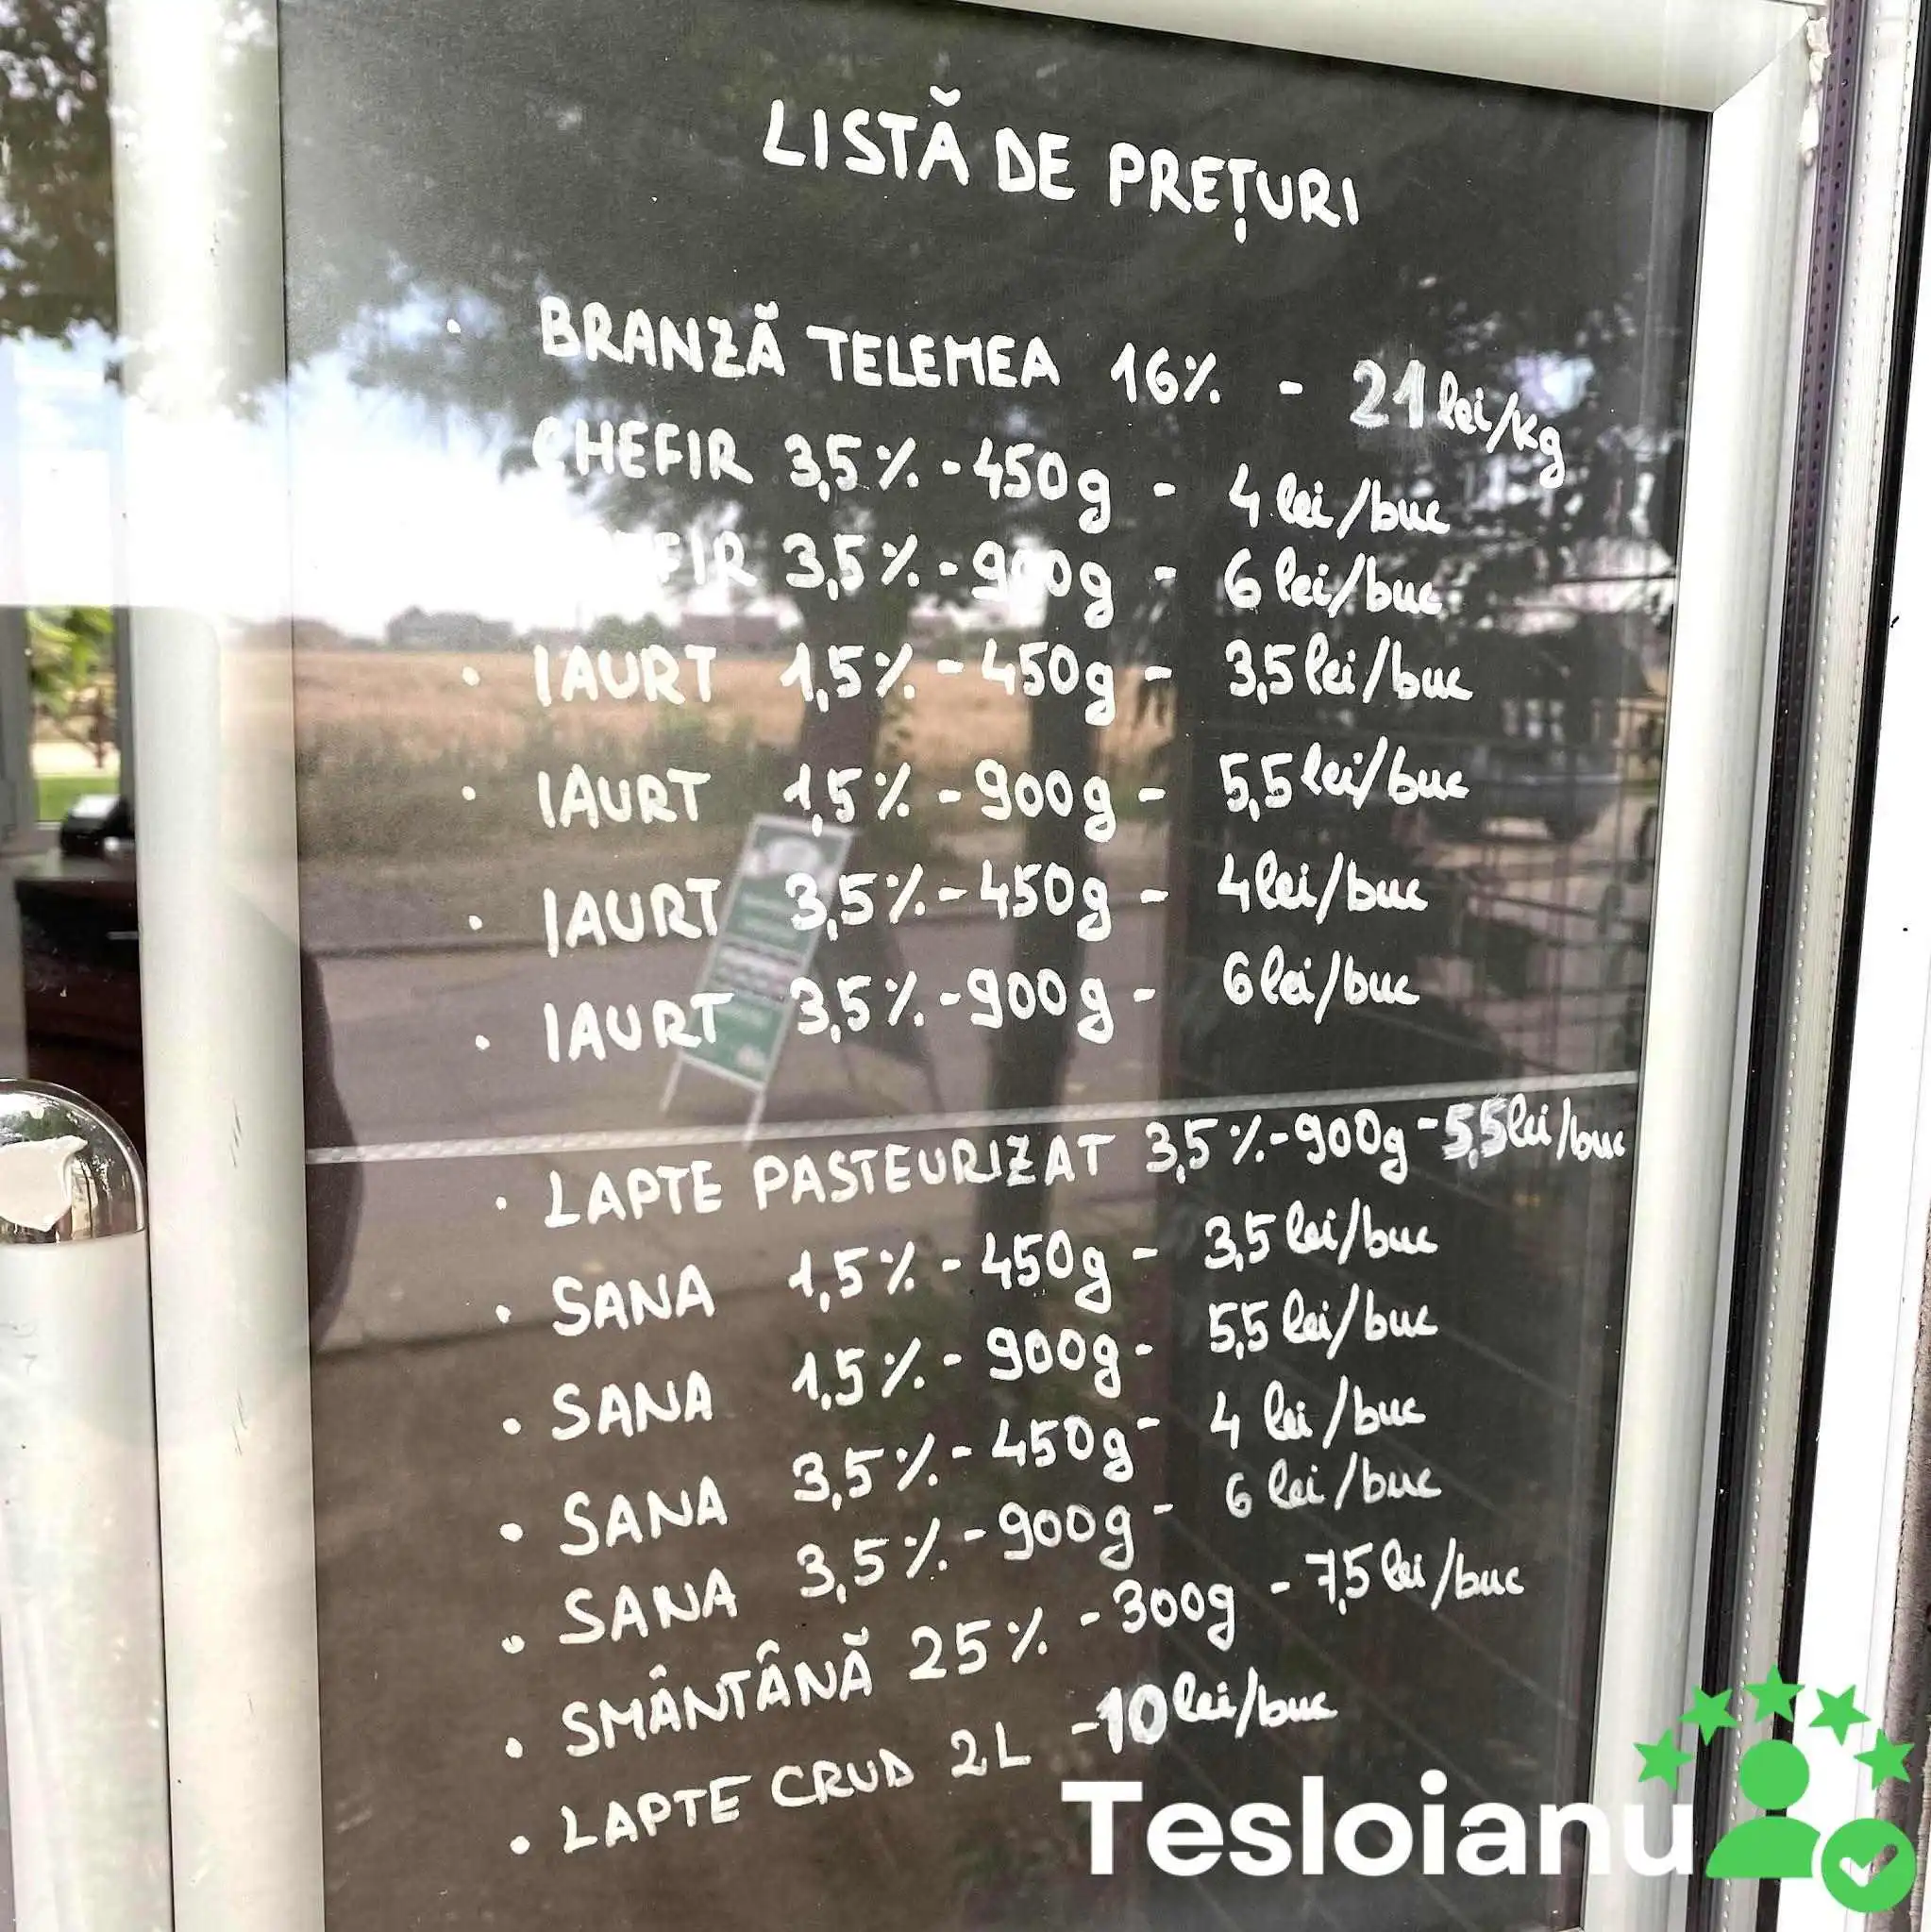 LISTĂ DE PREȚURI
• BRANZĂ TELEMEA 16% - 21 lei/kg
CHEFIR 3,5% - 450g - 4 lei/buc
3,5% - 900g - 6 lei/buc
• IAURT 1,5% - 450g - 3,5 lei/buc
• IAURT 1,5% - 900g - 5,5 lei/buc
• IAURT 3,5% - 450g - 4 lei/buc
• IAURT 3,5% - 900g - 6 lei/buc
• LAPTE PASTEURIZAT 3,5% - 900g - 5,5 lei/buc
• SANA 1,5% - 450g - 3,5 lei/buc
• SANA 1,5% - 900g - 5,5 lei/buc
• SANA 3,5% - 450g - 4 lei/buc
• SANA 3,5% - 900g - 6 lei/buc
• SMÂNTÂNĂ 25% - 300g - 7,5 lei/buc
• LAPTE CRUD 2L - 10 lei/buc
Tesloianu